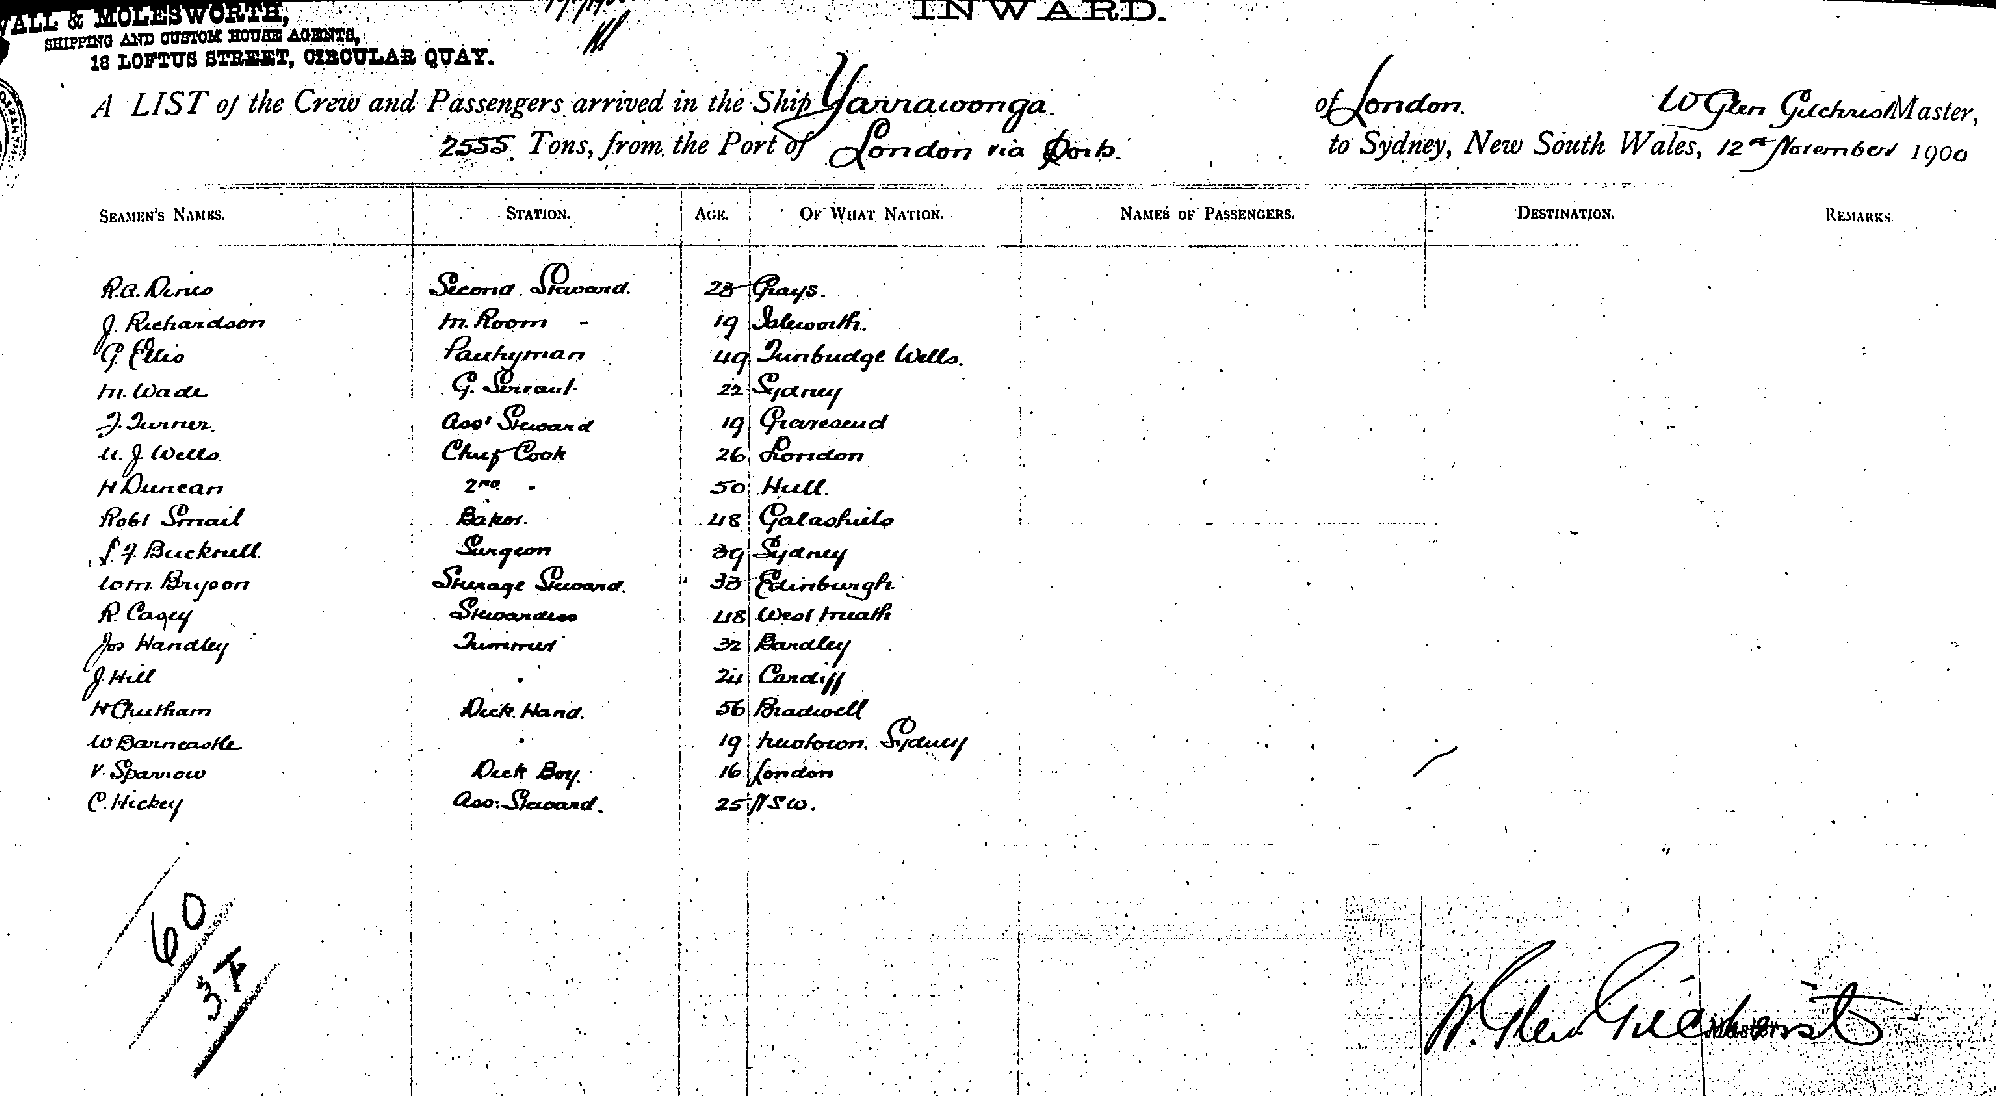 WALL & MOLESWORTH,
SHIPPING AND CUSTOM HOUSE AGENTS,
18 LOFTUS STREET, CIRCULAR QUAY.
INWARD.
A LIST of the Crew and Passengers arrived in the Ship Yarrawonga of London. W Glen Gilchrist Master,
2555 Tons, from the Port of London via Ports. to Sydney, New South Wales, 12th November 1900
SEAMEN'S NAMES. STATION. AGE. OF WHAT NATION. NAMES OF PASSENGERS. DESTINATION. REMARKS.
R.A. Second Steward. Grays.
J. Richardson M. Room - 19 Isleworth.
G. Ellis Pantryman 49 Tunbridge Wells.
M. Wade G. Servant 22 Sydney
J. Turner. Ass' Steward 19 Gravesend
J Wells Chief Cook 26 London
H Duncan 2nd " 50 Hull.
Robt Smail Baker. 48 Galashiels
Bucknell Surgeon 39 Sydney
Wm. Bryson Steerage Steward. 33 Edinburgh
R. Casey Stewardess 48 West Meath
Jos Handley Trimmer 32 Bardley
J. Hill " 24 Cardiff
H Cheetham Deck Hand. 56 Bradwell
W Barncastle " 19 Newtown. Sydney
V. Sparrow Deck Boy. 16 London
C. Hickey Ass: Steward. 25 NSW.
60
W. Glen Gilchrist